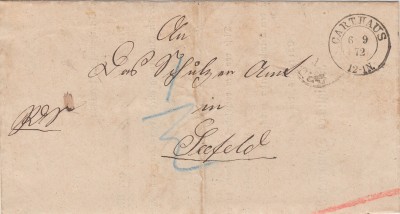 An
CARTHAUS
6 9
72
12-1N.
Das Schulzen Amt
in
Seefeld